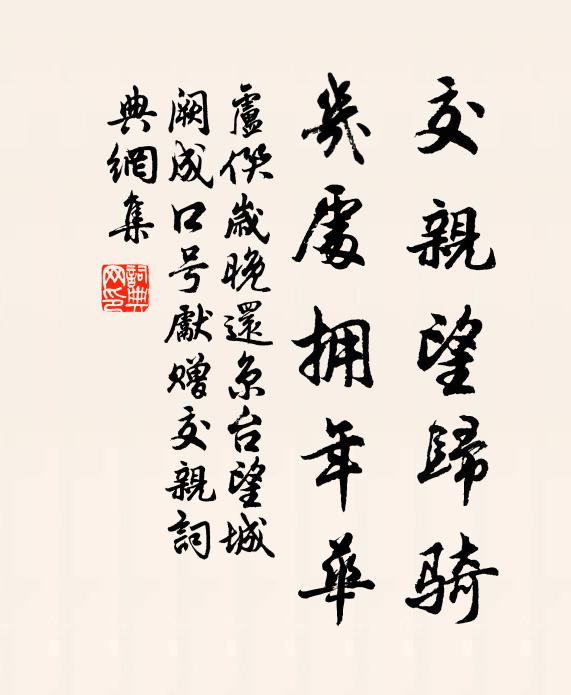 交親望歸骑
幾處拥年華
盧僎歲晚還京台望城
闕成口号獻赠交親詞
典網集
詞典网印